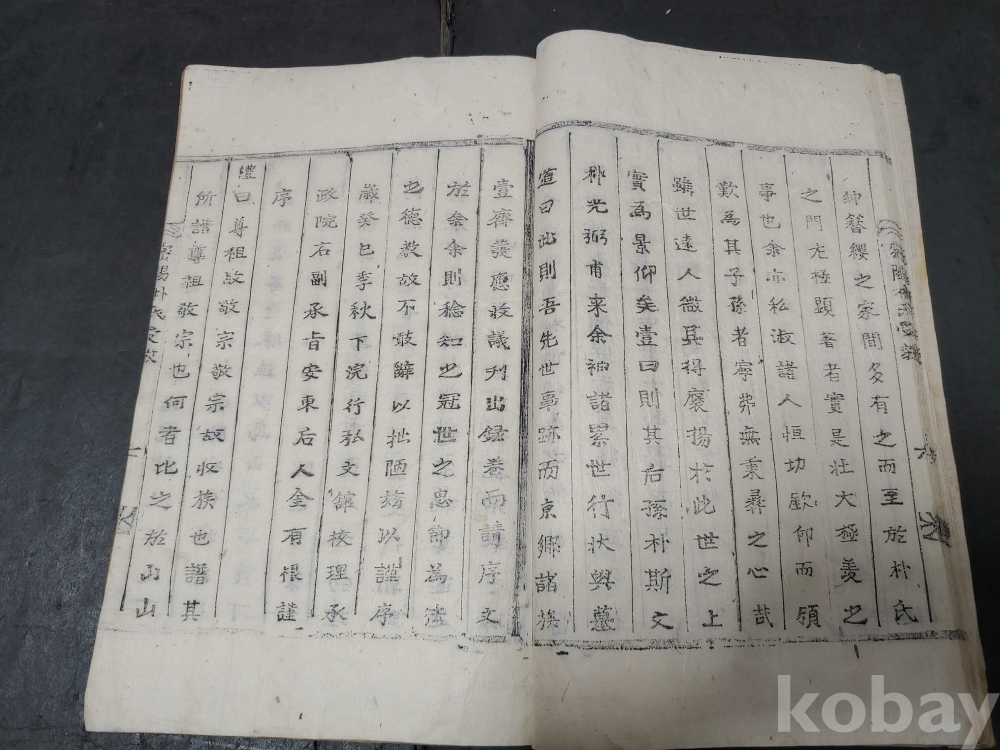 紳簪纓之家閒多有之而至於朴氏
之門尤極顯著者實是壯大極羨之
事也余亦私淑諸人恒切歆仰而頌
歎為其子孫者寧弗無秉彛之心哉
雖世遠人微其得襃揚於此世之上
實為景仰矣壹日則其后孫朴斯文
朴光弼甫来余袖諸累世行狀與墓
道曰此則吾先世事跡而京鄉諸族
壹齊發應收議刊出錄卷而請序文
於余余則稔知也冠世之忠節為
也德敎故不敢辭以拙陋 以謹序
歲癸巳季秋下浣行私文舘校理承
政院右副承旨安東后人金有 謹
序
禮曰尊祖故敬宗敬宗故收族也譜其
所譜尊祖敬宗也何者比之於山山
密陽朴氏
kobay